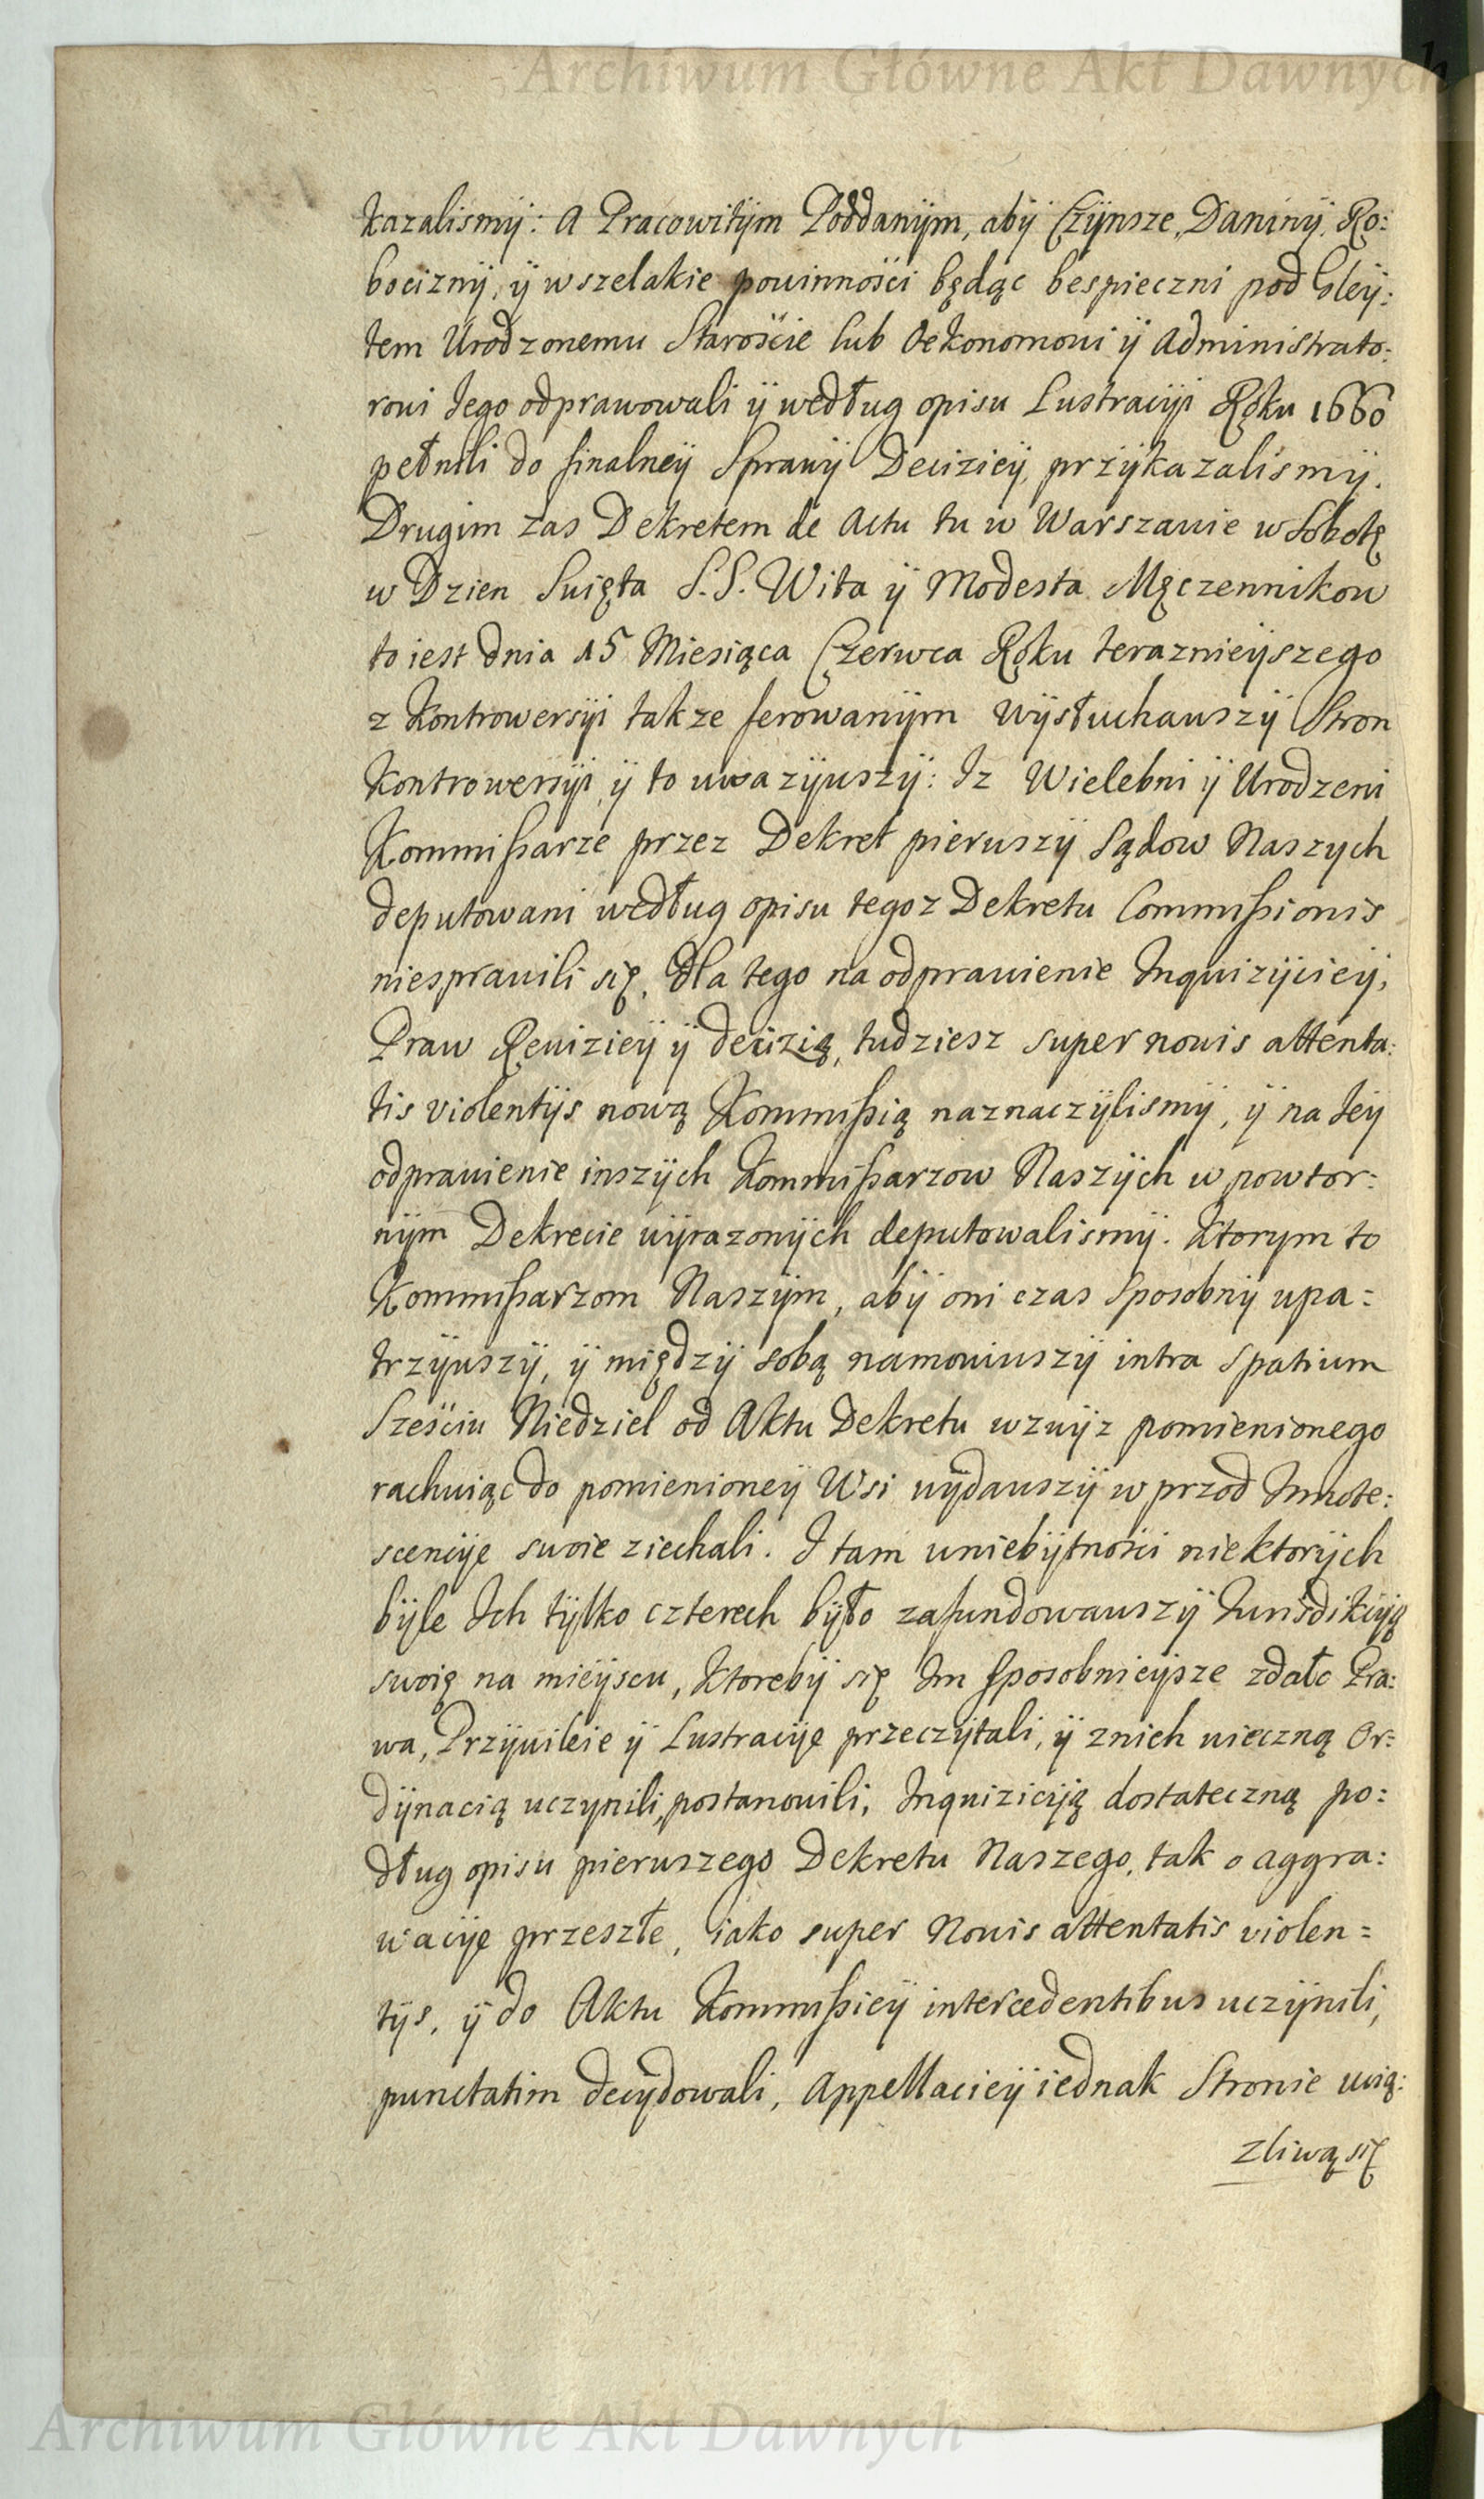 Archiwum Główne Akt Dawnych
kazalismÿ: A Pracowitÿm Poddanÿm, abÿ Czÿnsze, Daninÿ, Ro:
bociznÿ, ÿ wszelakie powinności będąc bespieczni pod Gleÿ:
tem Urodzonemu Staroście lub Oekonomowi ÿ Administrato:
rowi Jego odprawowali ÿ według opisu Lustracÿi Roku 1660
pełnili do finalneÿ Sprawÿ Decizieÿ, przÿkazaliśmÿ.
Drugim zas Dekretem de Actu tu w Warszawie w Sobotę
w Dzien Swięta S.S. Wita ÿ Modesta Męczennikow
to iest dnia 15 Miesiąca Czerwca Roku terazniejszego
z Kontrowersÿi takze ferowanÿm wÿsłuchawszÿ Stron
Kontrowersÿi, ÿ to uwazÿwszÿ: Iz Wielebni ÿ Urodzeni
Kommißarze przez Dekret pierwszÿ Sądow Naszych
deputowani według opisu tegoz Dekretu Commißionis
niesprawili się, dla tego na odprawienie Inquizÿcieÿ,
Praw Rewizieÿ ÿ decizią, tudziesz super novis attenta:
tis violentÿs nową Kommißią naznaczÿlismÿ, ÿ na Jeÿ
odprawienie inszÿch Kommißarzow Naszÿch w powtor:
nÿm Dekrecie wÿrazonÿch deputowalismÿ. Ktorym to
Kommißarzom Naszÿm, abÿ oni czas sposobnÿ upa=
trzÿwszÿ, ÿ międzÿ sobą namowiwszÿ intra spatium
Sześciu Niedziel od Aktu Dekretu wzwÿz pomienionego
rachuiąc do pomienioneÿ Wsi wÿdawszÿ w przod Innote:
scencÿe swoie ziechali. I tam w niebÿtności niektorÿch
bÿle Ich tÿlko czterech bÿło zafundowawszÿ Jurisdikcÿą
swoię na mieÿscu, ktorebÿ się Im sposobnieÿsze zdało Pra:
wa, Przÿwileie ÿ Lustracÿe przeczÿtali, ÿ znich wieczną Or=
dÿnacią uczynili, postanowili, Inquizicÿą dostateczną po=
dług opisu pierwszego Dekretu Naszego, tak o aggra:
wacÿe przeszłe, iako super Novis attentatis violen=
tÿs, ÿ do Aktu Kommißieÿ intercedentibus uczÿnili,
punctatim decÿdowali, Appellacieÿ iednak Stronie uwią:
zliwą się
Archiwum Główne Akt Dawnych